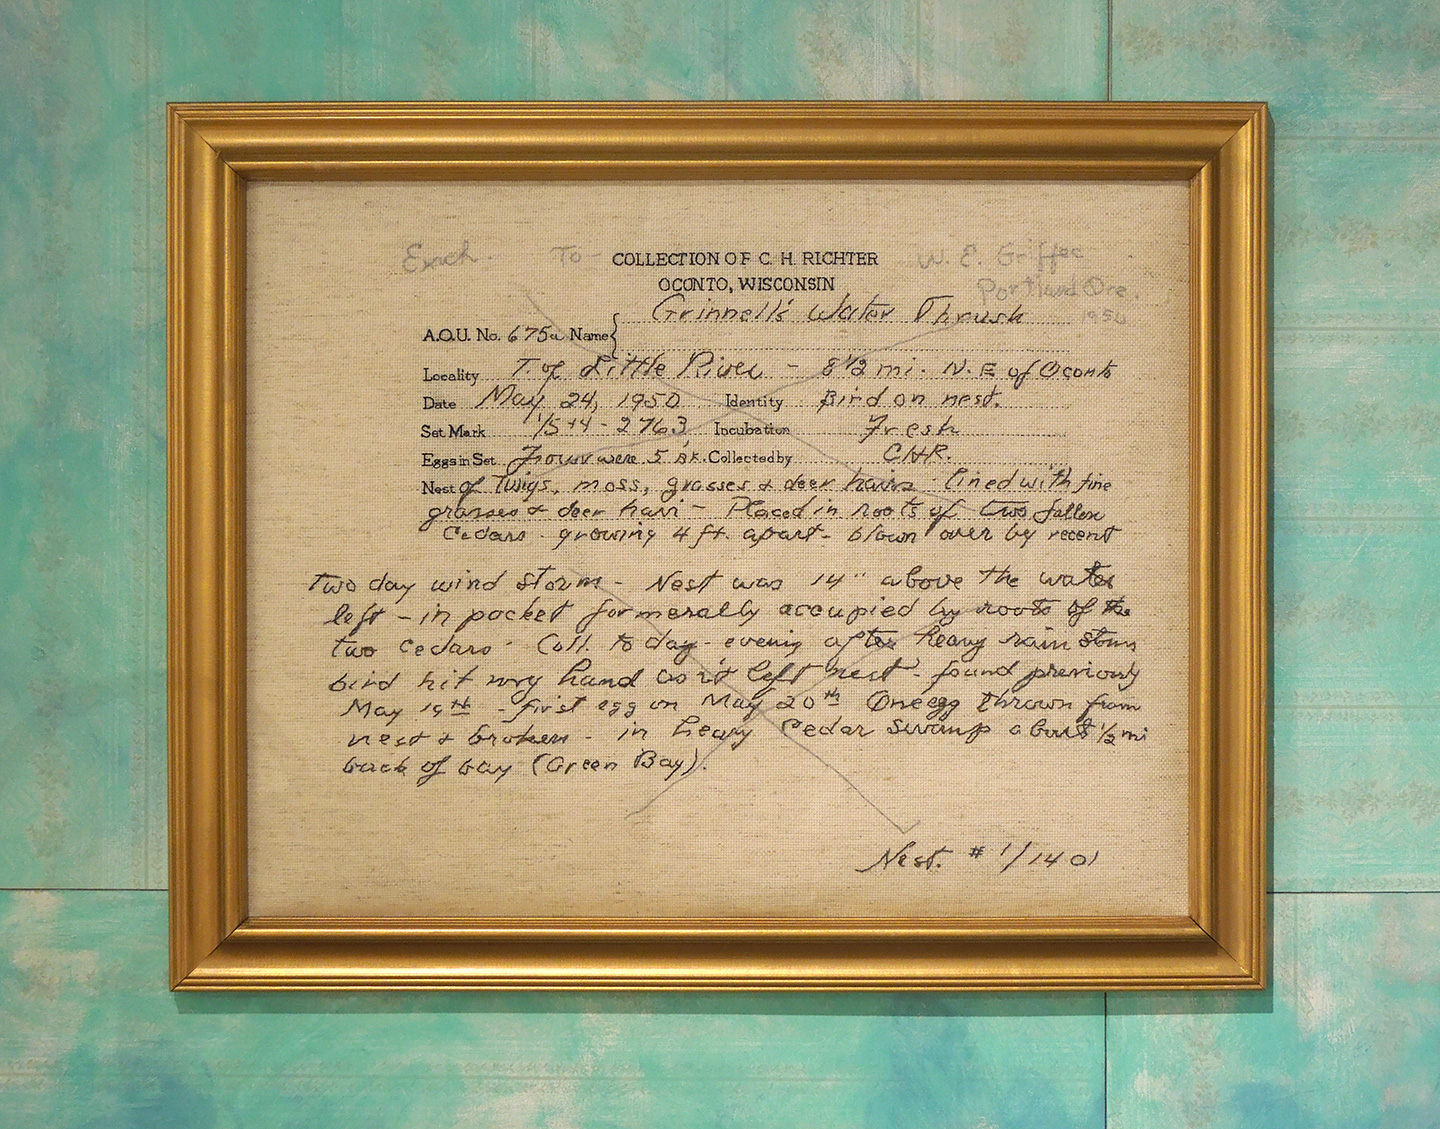 Exch. To - COLLECTION OF C. H. RICHTER W. E. Griffee
OCONTO, WISCONSIN Portland Ore.
Grinnell's Water Thrush 1950
A.O.U. No. 675a Name
Locality T. of Little River - 8 1/2 mi. N. E of Oconto
Date May 24, 1950 Identity Bird on nest.
Set Mark 1/5+4 - 2763 Incubation Fresh
Eggs in Set Four were 5, BK. Collected by CHR.
Nest of Twigs, moss, grasses & deer hairs - lined with fine
grasses & deer hair - Placed in roots of two fallen
Cedars - growing 4 ft. apart - blown over by recent
Two day wind storm - Nest was 14" above the water
left - in pocket formerally occupied by roots of the
two cedars - Coll. to day - evening after heavy rain storm
bird hit my hand as it left nest - found previously
May 19th - first egg on May 20th One egg thrown from
nest & broken - in heavy Cedar Swamp about 1/2 mi
back of bay (Green Bay).
Nest. # 1/1401